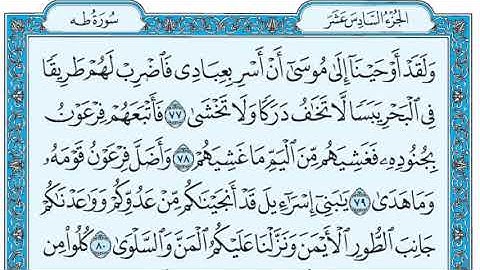 الجزء السادس عشر
سورة طه
وَلَقَدْ أَوْحَيْنَآ إِلَىٰ مُوسَىٰٓ أَنْ أَسْرِ بِعِبَادِى فَٱضْرِبْ لَهُمْ طَرِيقًا
فِى ٱلْبَحْرِ يَبَسًا لَّا تَخَٰفُ دَرَكًا وَلَا تَخْشَىٰ ٧٧ فَأَتْبَعَهُمْ فِرْعَوْنُ
بِجُنُودِهِۦ فَغَشِيَهُم مِّنَ ٱلْيَمِّ مَا غَشِيَهُمْ ٧٨ وَأَضَلَّ فِرْعَوْنُ قَوْمَهُۥ
وَمَا هَدَىٰ ٧٩ يَٰبَنِىٓ إِسْرَٰٓءِيلَ قَدْ أَنجَيْنَٰكُم مِّنْ عَدُوِّكُمْ وَوَٰعَدْنَٰكُمْ
جَانِبَ ٱلطُّورِ ٱلْأَيْمَنَ وَنَزَّلْنَا عَلَيْكُمُ ٱلْمَنَّ وَٱلسَّلْوَىٰ ٨٠ كُلُوا۟ مِن